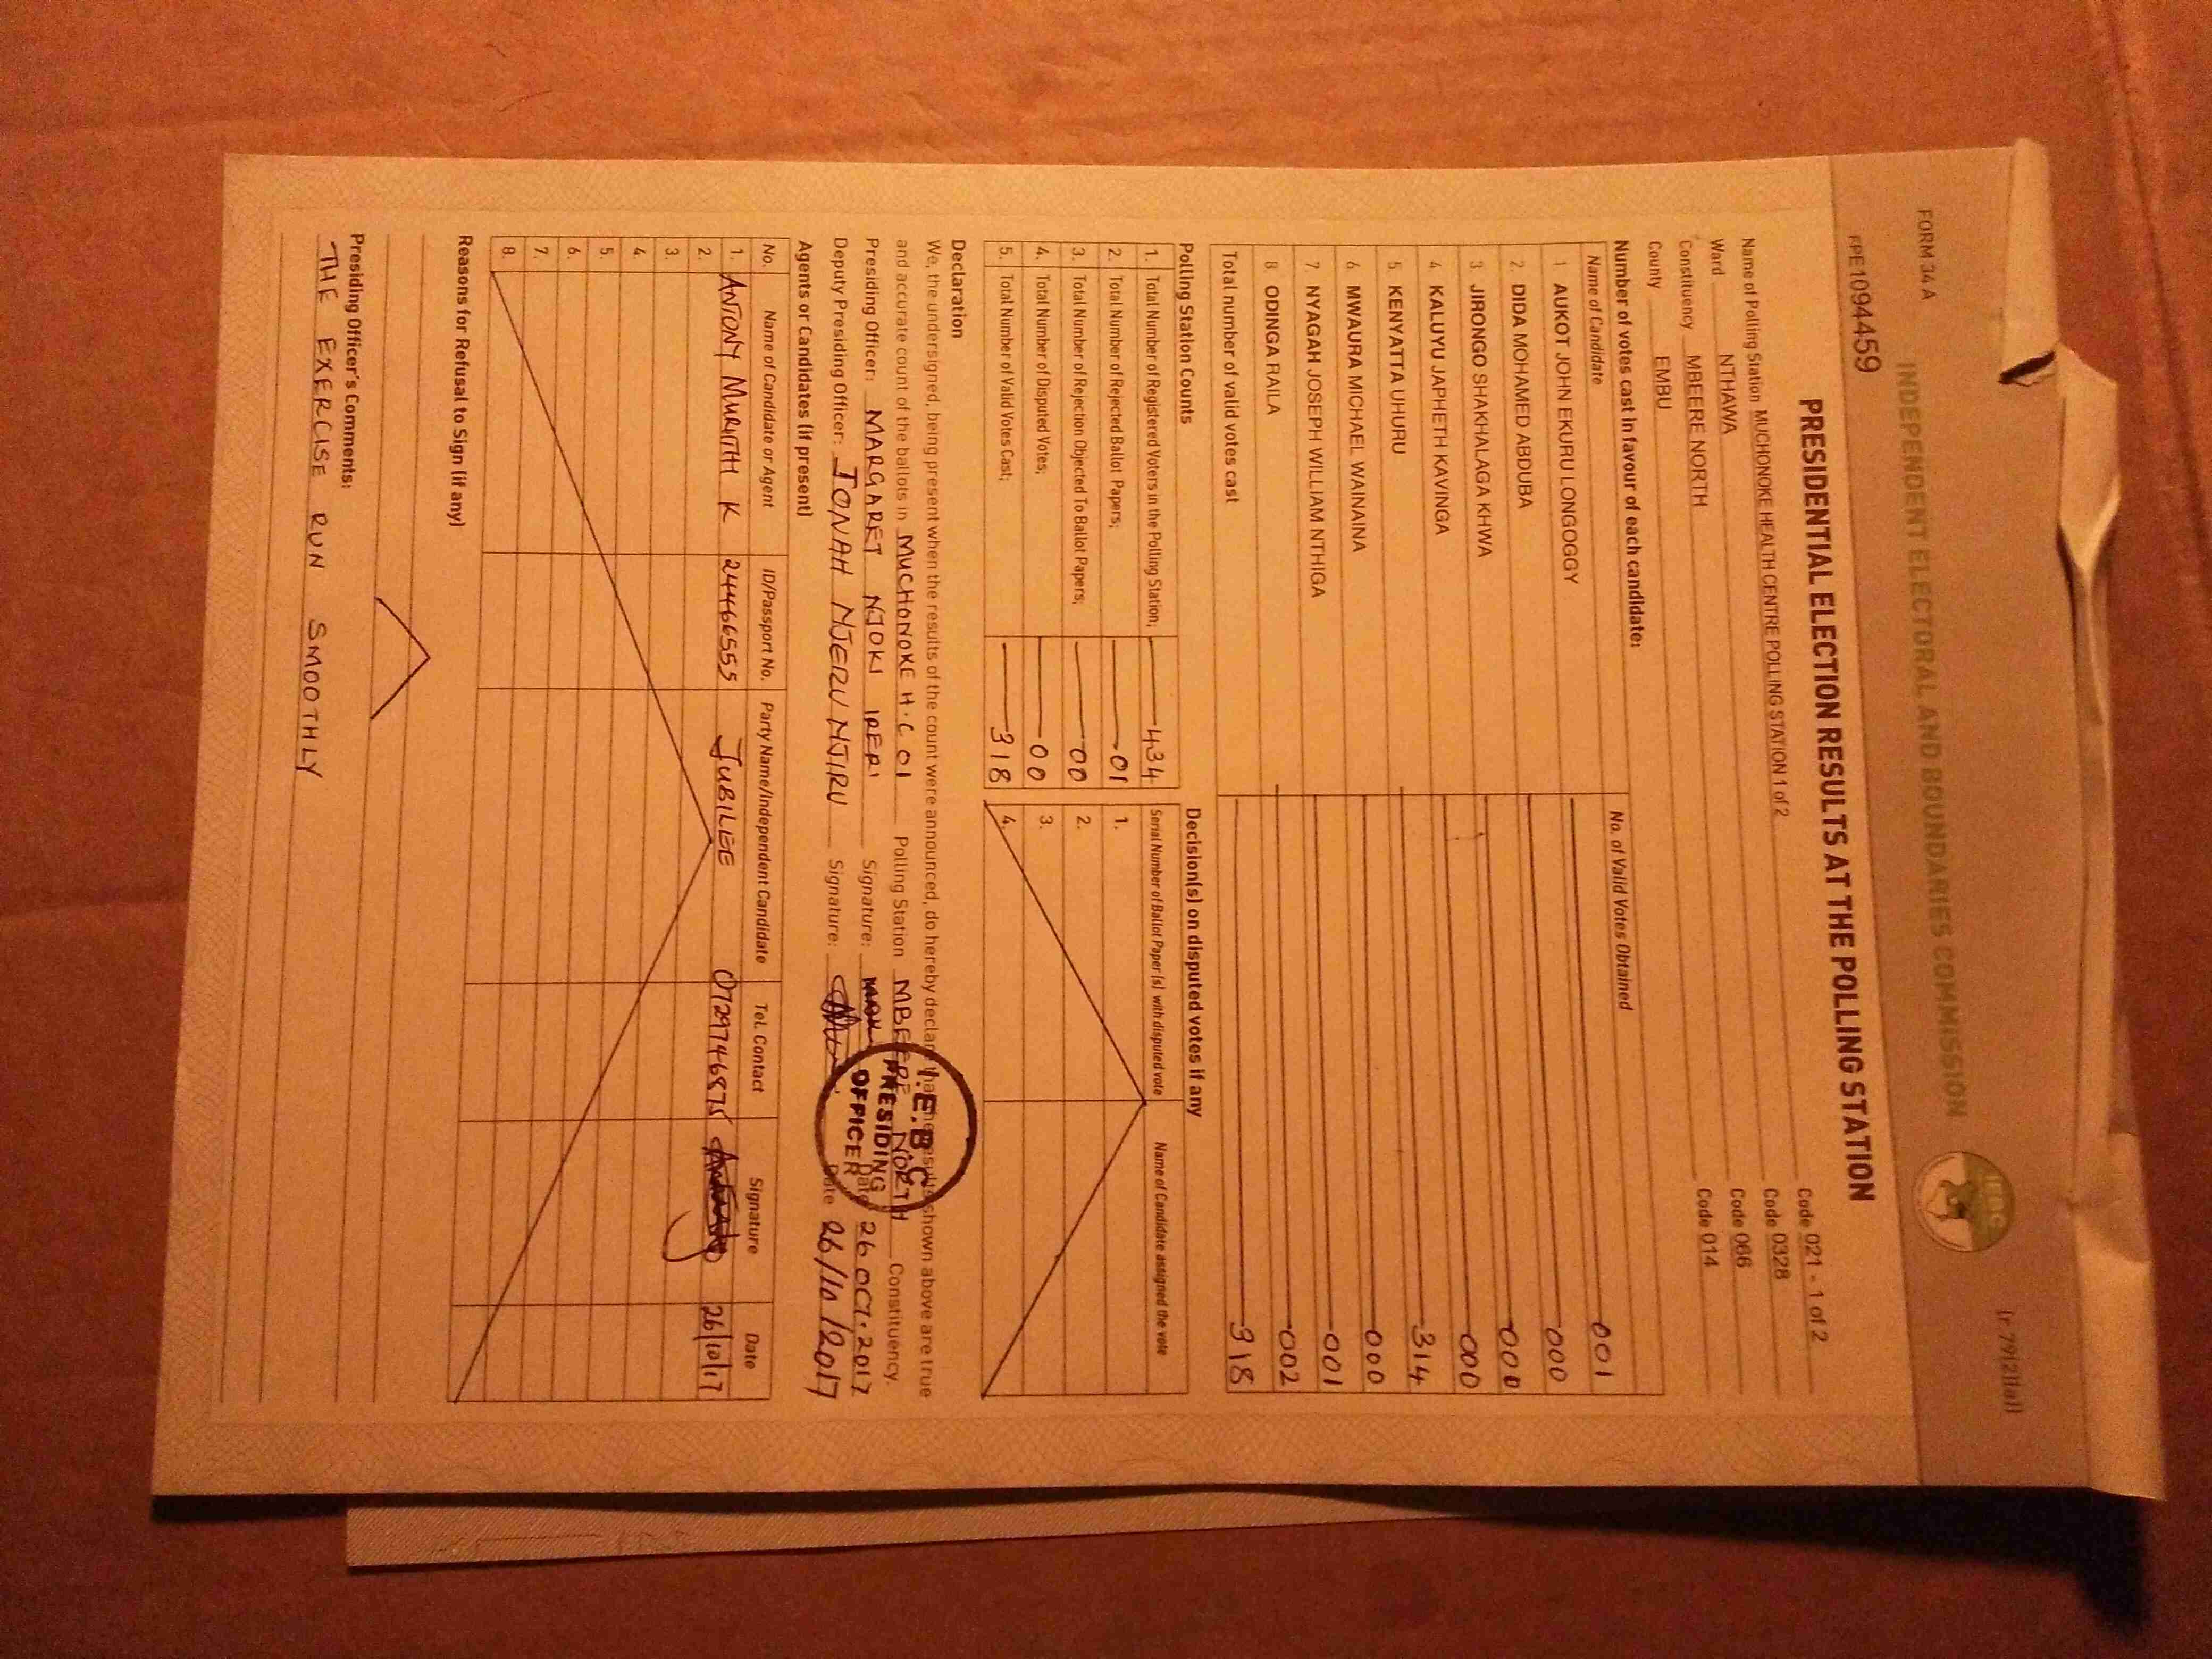 FORM 34 A
(r 79(2)(a))
INDEPENDENT ELECTORAL AND BOUNDARIES COMMISSION
iebc
PPE1094459
PRESIDENTIAL ELECTION RESULTS AT THE POLLING STATION
Name of Polling Station MUCHONOKE HEALTH CENTRE POLLING STATION 1 of 2 Code 021 - 1 of 2
Ward NTHAWA Code 0328
Constituency MBEERE NORTH Code 066
County EMBU Code 014
Number of votes cast in favour of each candidate:
Name of Candidate No. of Valid Votes Obtained
1 AUKOT JOHN EKURU LONGOGGY 001
2. DIDA MOHAMED ABDUBA 000
3 JIRONGO SHAKHALAGA KHWA 000
4 KALUYU JAPHETH KAVINGA 000
5 KENYATTA UHURU 314
6 MWAURA MICHAEL WAINAINA 000
7 NYAGAH JOSEPH WILLIAM NTHIGA 001
8 ODINGA RAILA 002
Total number of valid votes cast 318
Polling Station Counts
1. Total Number of Registered Voters in the Polling Station; 434
2. Total Number of Rejected Ballot Papers; 01
3. Total Number of Rejection Objected To Ballot Papers; 00
4. Total Number of Disputed Votes; 00
5. Total Number of Valid Votes Cast; 318
Decision(s) on disputed votes if any
Serial Number of Ballot Paper (s) with disputed vote Name of Candidate assigned the vote
1.
2.
3.
4.
Declaration
We, the undersigned, being present when the results of the count were announced, do hereby declare that the results shown above are true
and accurate count of the ballots in MUCHONOKE H.C 01 Polling Station MBEERE NORTH Constituency.
Presiding Officer: MARGARET NJOKI IRERI Signature: Date 26 OCT. 2017
Deputy Presiding Officer: JONAH NJERU NJIRU Signature: Date 26/10/2017
I.E.B.C
PRESIDING
OFFICER
Agents or Candidates (if present)
No. Name of Candidate or Agent ID/Passport No. Party Name/Independent Candidate Tel. Contact Signature Date
1. ANTONY MURIITH K 24466555 JUBILEE 0729746875 26/10/17
2.
3.
4.
5.
6.
7.
8.
Reasons for Refusal to Sign (if any)
Presiding Officer's Comments:
THE EXERCISE RUN SMOOTHLY